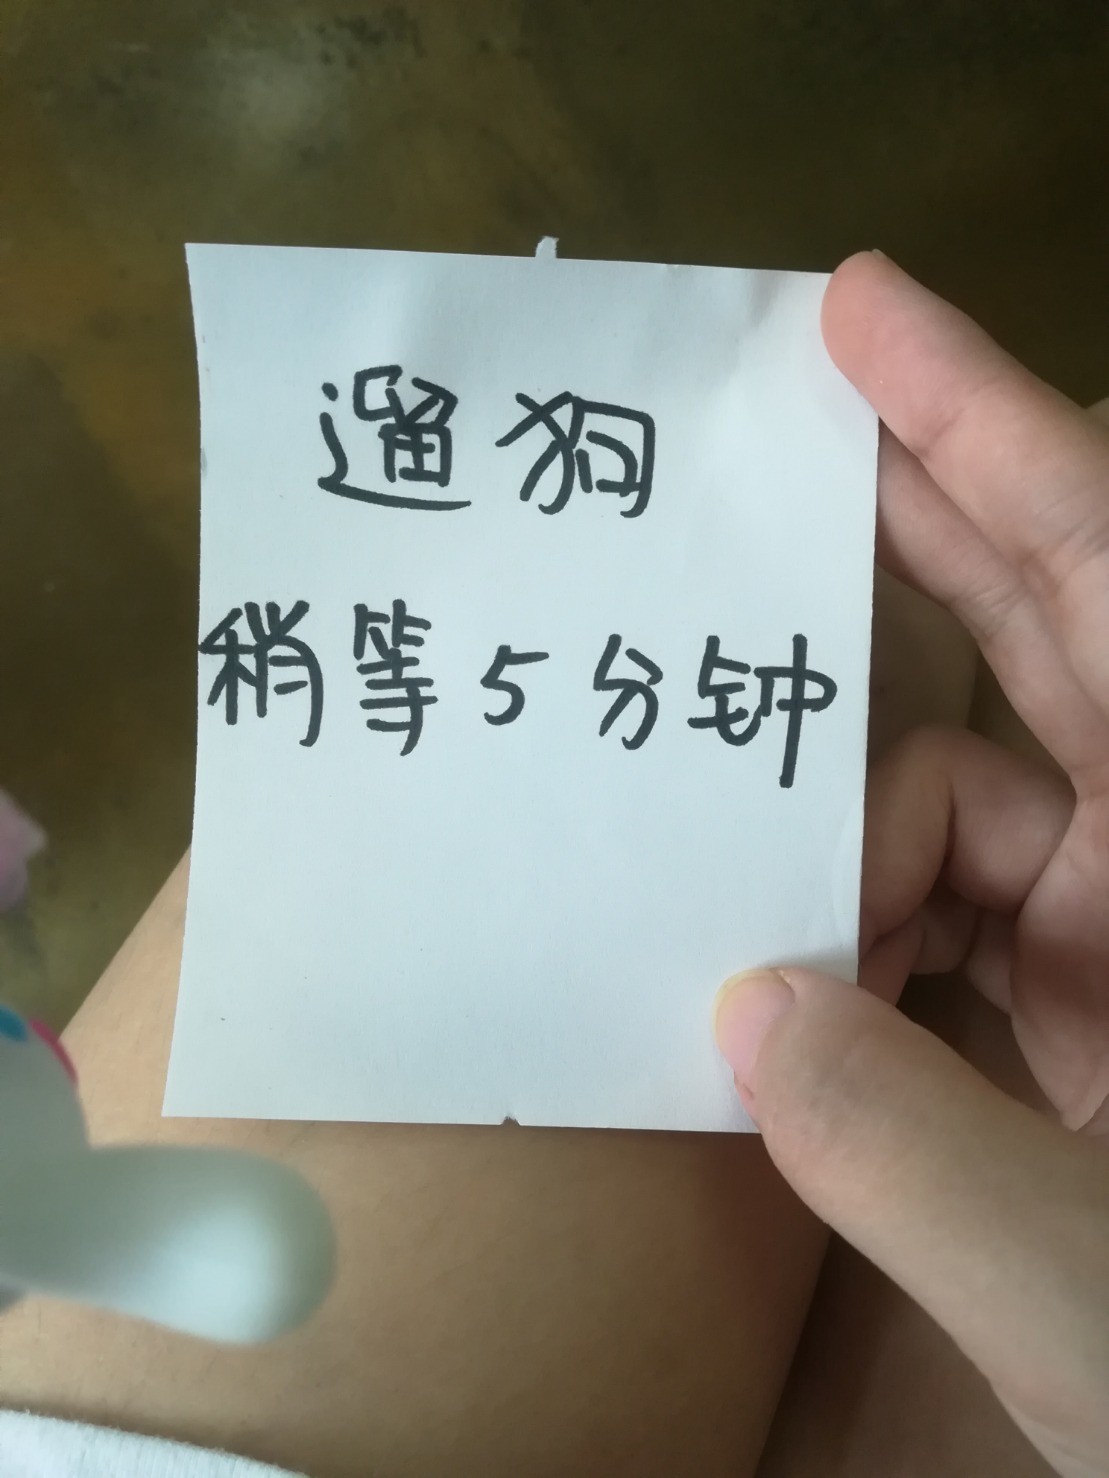 遛狗
稍等5分钟